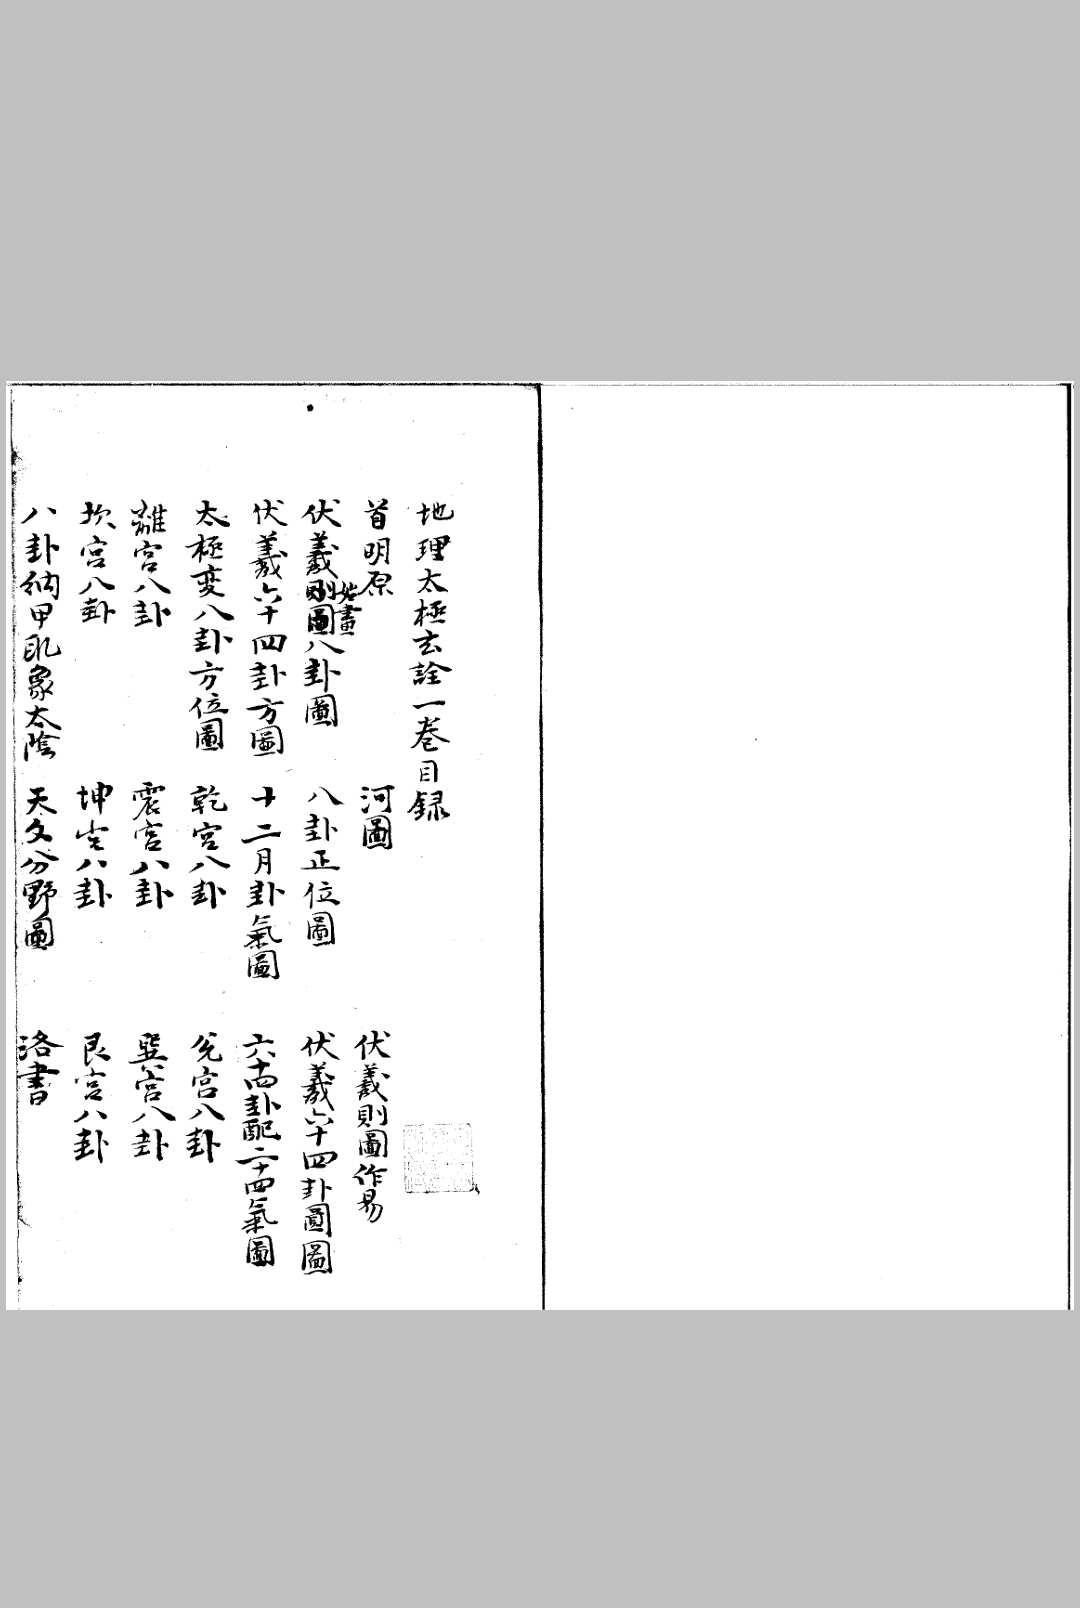 地理太極玄詮一巻目録
首明原 河圖 伏羲則圖作易
伏羲始畫八卦圖 八卦正位圖 伏羲六十四卦圓圖
伏羲六十四卦方圖 十二月卦氣圖 六十四卦配二十四氣圖
太極変八卦方位圖 乾宮八卦 兊宮八卦
離宮八卦 震宮八卦 巽宮八卦
坎宮八卦 坤宮八卦 艮宮八卦
八卦納甲 象太陰 天文分野圖 洛書